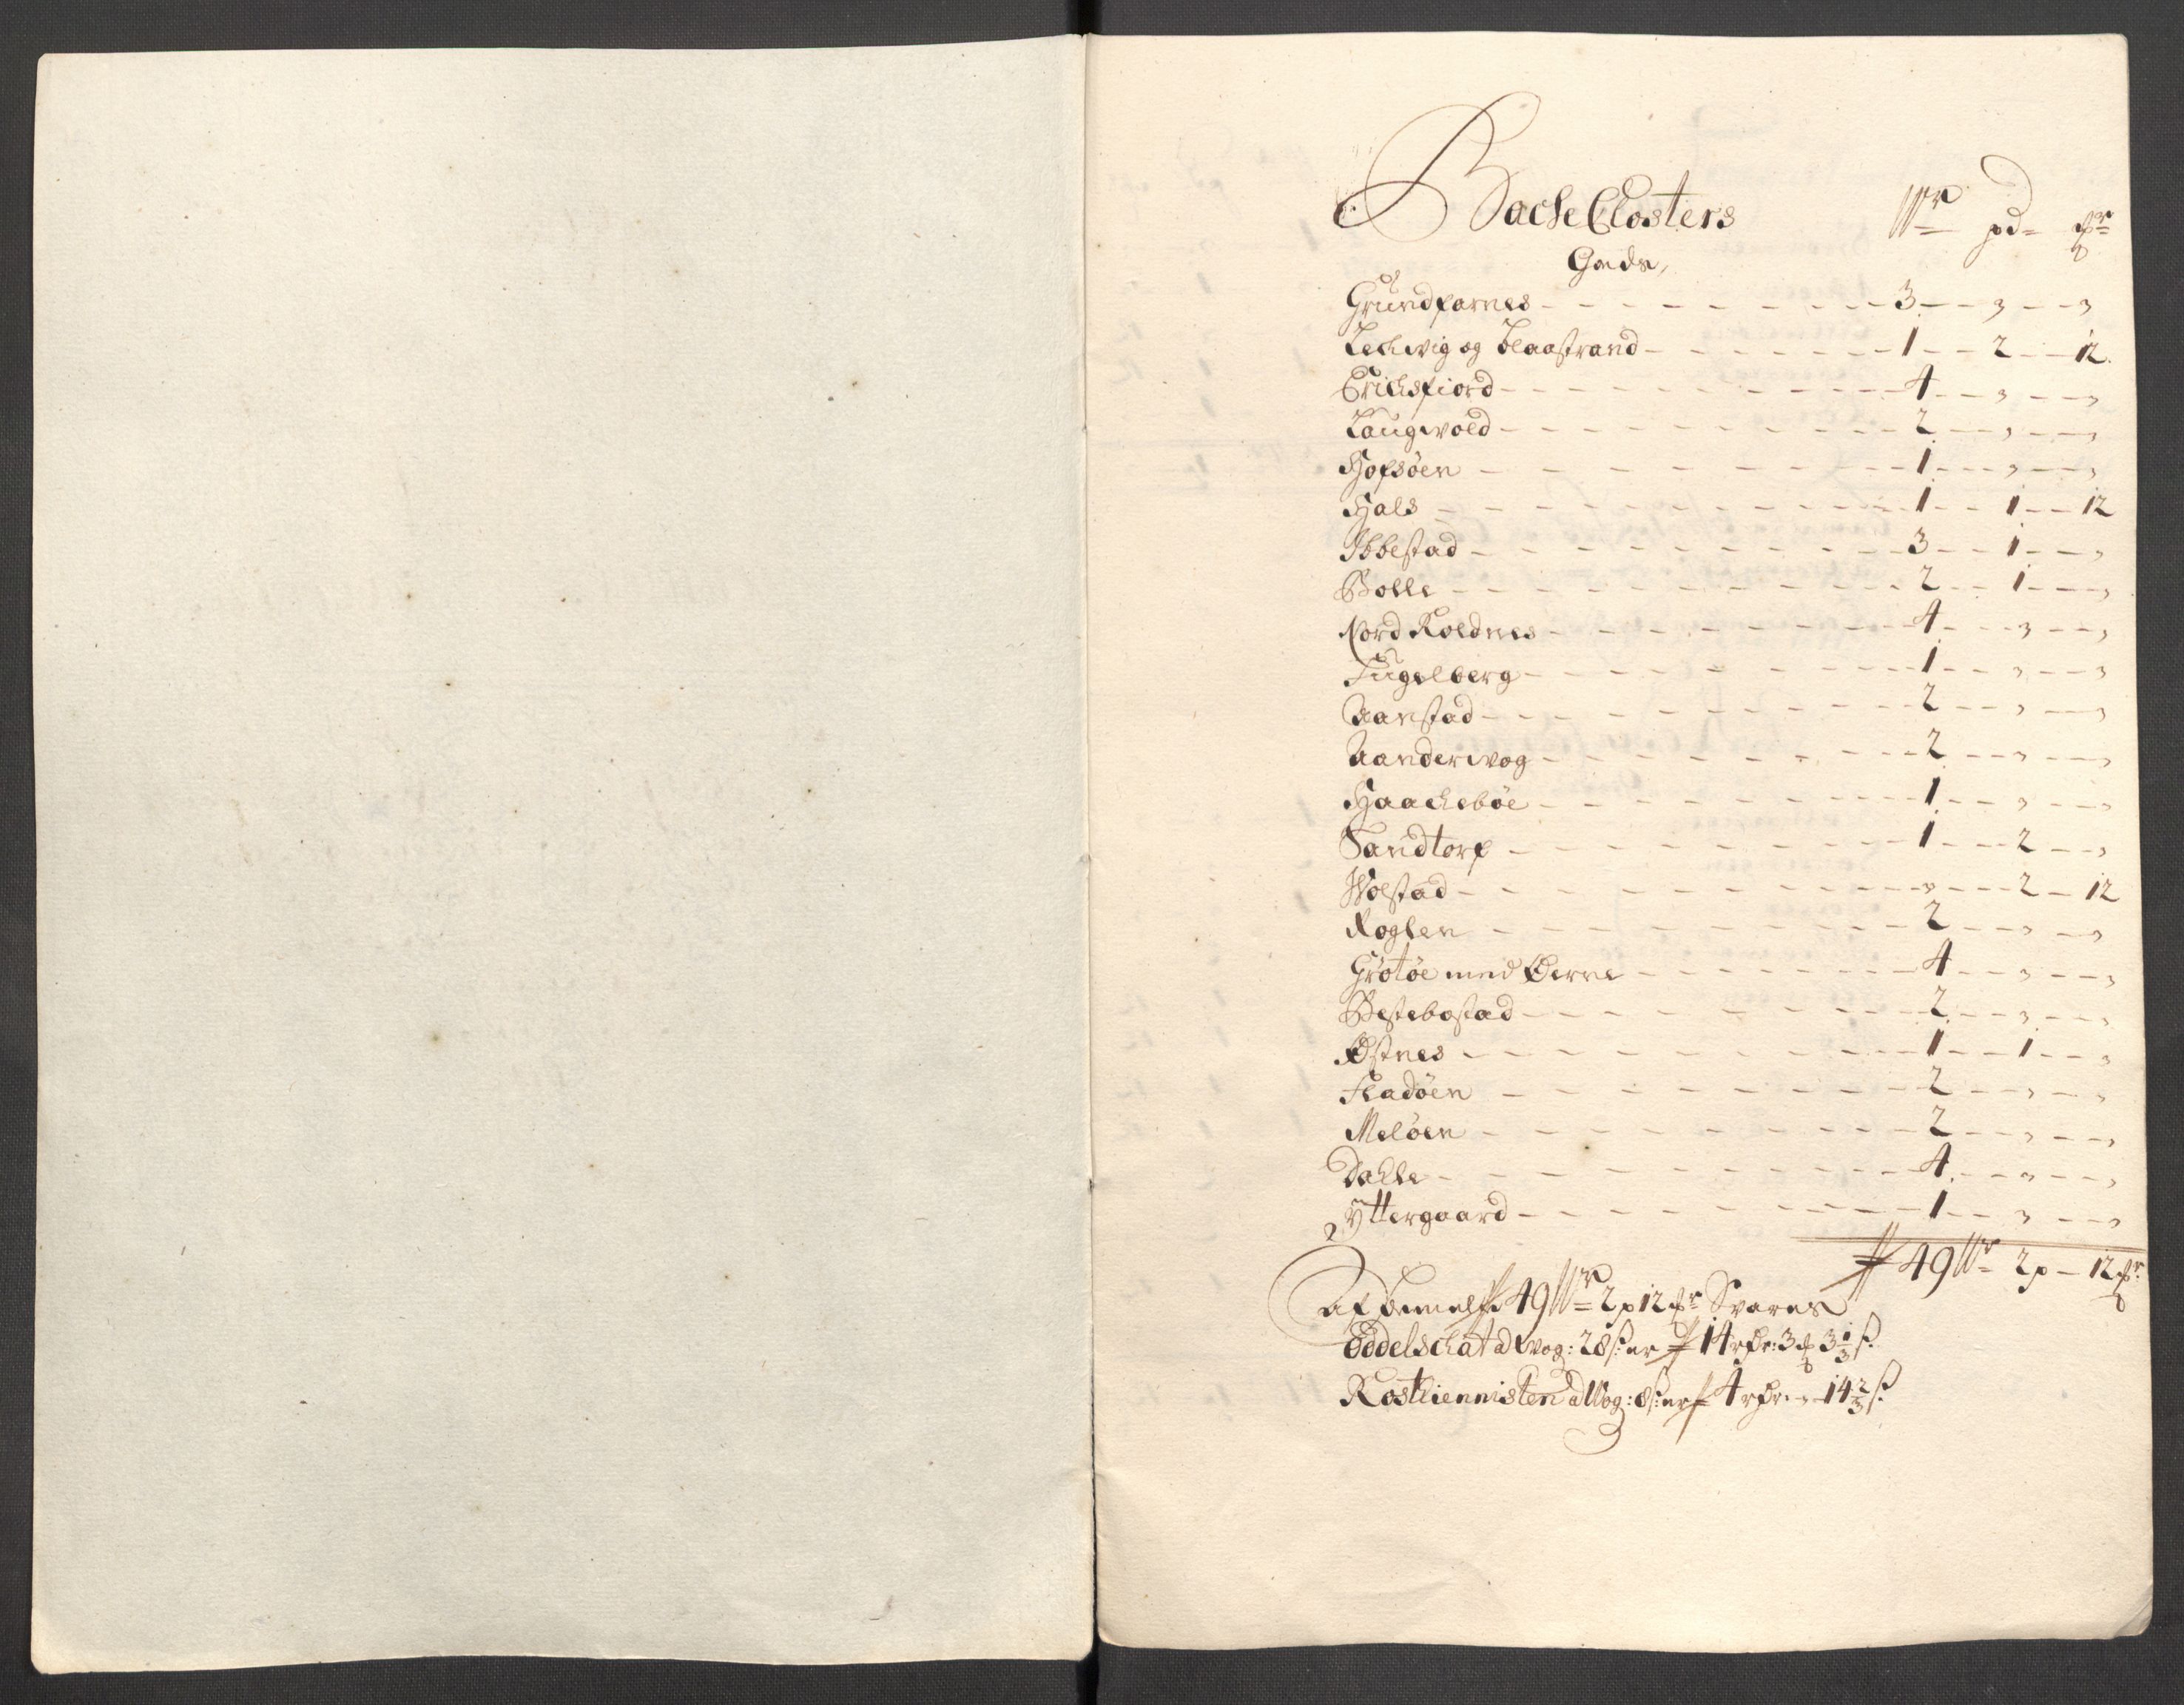 Backe Closters Wr pd= ℔r
Goeds,
Grundfarnes - - - 3 - - „ - - „
Lechvig og Blaastrand - - - 1 - - 2 - - 12
Erichsfiord - - - 4 - - „ - - „
Laugvold - - - 2 - - „ - - „
Hofsöen - - - 1 - - „ - - „
Hals - - - 1 - - 1 - - 12
Ibbestad - - - 3 - - 1 - - „
Bolle - - - 2 - - 1 - - „
Nord Roldnes - - - 4 - - „ - - „
Fugelberg - - - 1 - - „ - - „
Aanstad - - - 2 - - „ - - „
Aandervog - - - 2 - - „ - - „
Haachebøe - - - 1 - - „ - - „
Sandtorf - - - 1 - - 2 - - „
Wolstad - - - „ - - 2 - 12
Roglen - - - 2 - - „ - - „
Grotöe med Öerne - - - 4 - - „ - - „
Bestebostad - - - 2 - - „ - - „
Østnes - - - 1 - - 1 - - „
Fladöen - - - 2 - - „ - - „
Melöen - - - 2 - - „ - - „
Dahle - - - 4 - - „ - - „
Yttergaard - - - 1 - - „ - - „
49 Wr 2p - 12 ℔r
Af bemelte 49 Wr 2p 12 ℔r Svares
Oddelschat a Wog: 28 ß er 14 rdr: 3 ℔ 3 1/3 ß
Rosthiennisten a Wog: 8 ß: er 4 rdr: „ 14 2/3 ß